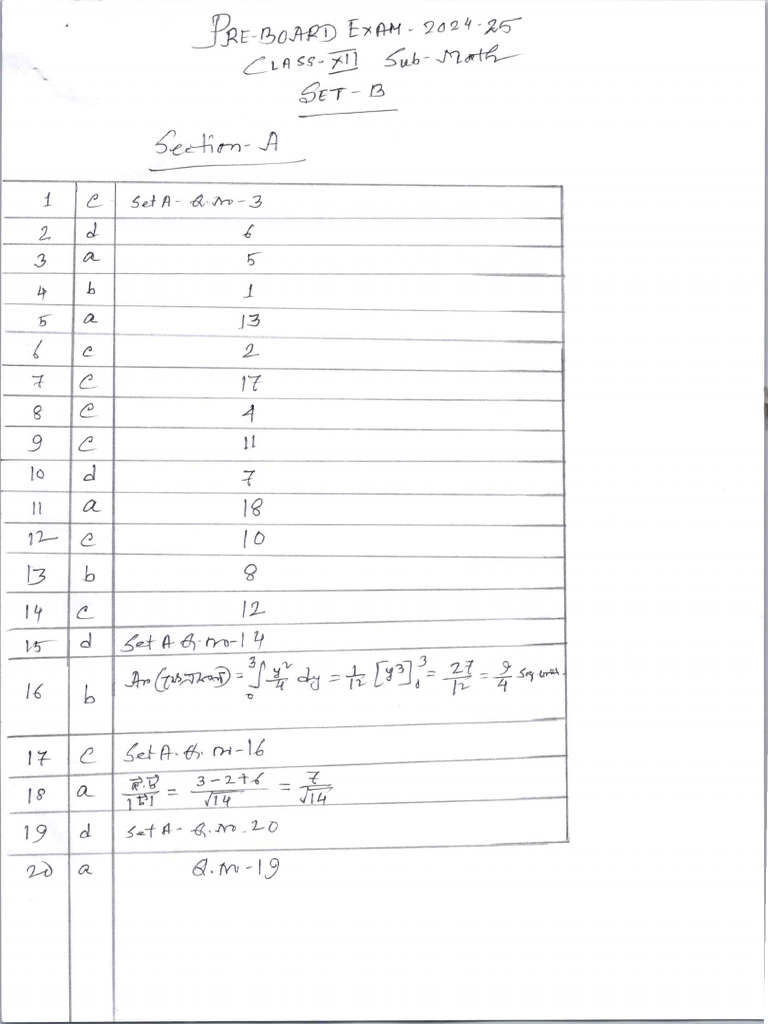 PRE-BOARD EXAM-2024-25
CLASS-XII Sub-Math
SET-B
Section-A
1 c Set A- Q.No-3
2 d 6
3 a 5
4 b 1
5 a 13
6 c 2
7 c 17
8 c 4
9 c 11
10 d 7
11 a 18
12 c 10
13 b 8
14 c 12
15 d Set A Q.no-14
16 b = ∫₀³ y²/4 dy = 1/12 [y3]₀³ = 27/12 = 9/4
17 c Set A-Q.no-16
18 a a⃗.b⃗/|b⃗| = 3-2+6/√14 = 7/√14
19 d Set A- Q.No.20
20 a Q.no-19